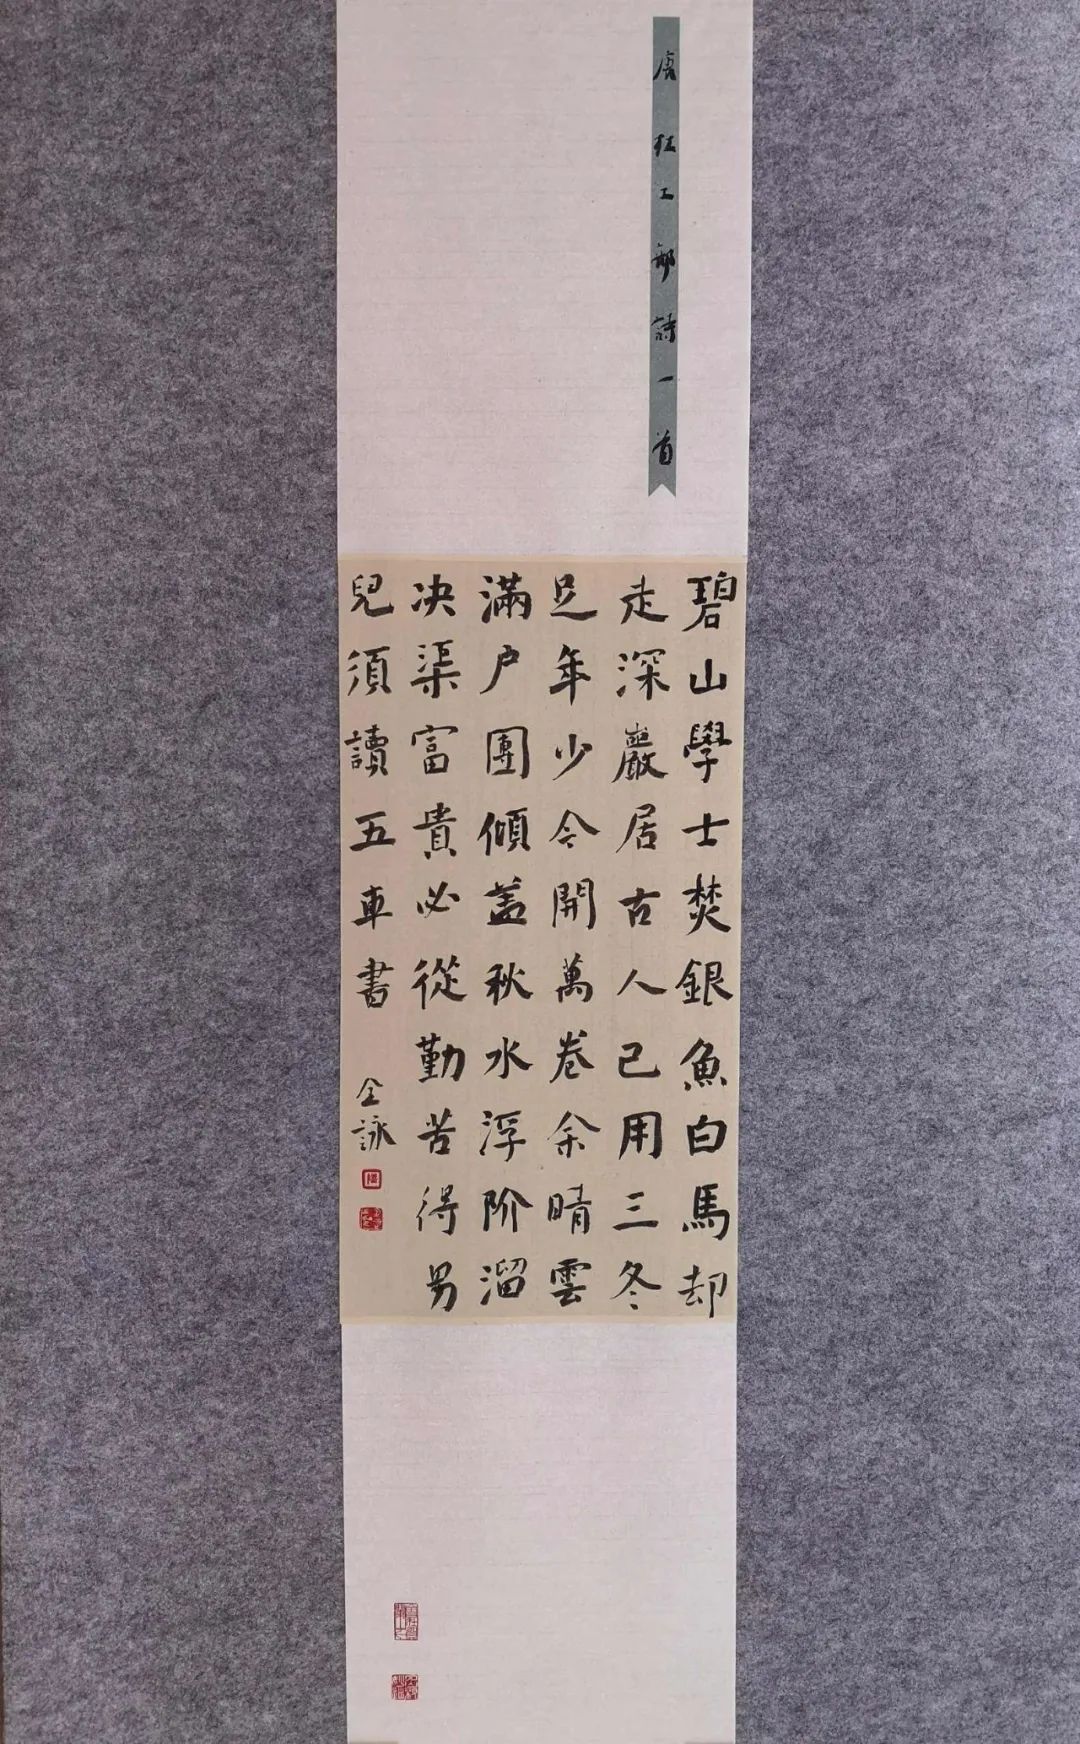 唐杜工部詩一首
碧山學士焚銀魚白馬却
走深巖居古人己用三冬
足年少今開萬卷余晴雲
滿户團傾盖秋水浮阶溜
决渠富貴必從勤苦得男
兒須讀五車書
全詠